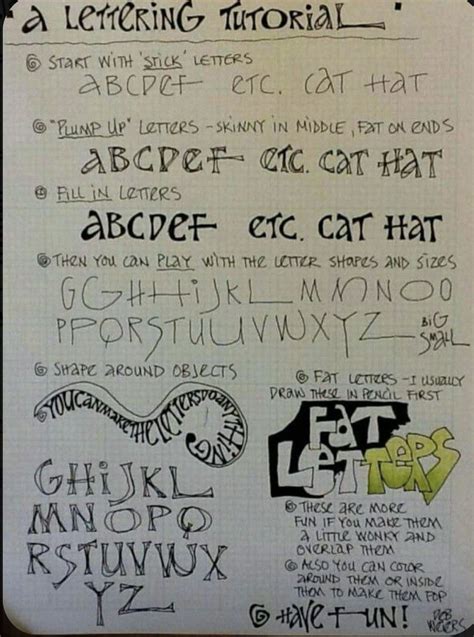 "A LETTERING TUTORIAL"
START WITH 'STICK' LETTERS
ABCDEF ETC. CAT HAT
"PLUMP UP" LETTERS - SKINNY IN MIDDLE, FAT ON ENDS
ABCDEF ETC. CAT HAT
FILL IN LETTERS
ABCDEF ETC. CAT HAT
THEN YOU CAN PLAY WITH THE LETTER SHAPES AND SIZES
GGHHIJKL MNNOO
PPQRSTUUVWXYZ BIG SMALL
SHAPE AROUND OBJECTS
YOU CAN MAKE THE LETTERS DO ANYTHING
GHIJKL
MNOPQ
RSTUVWX
YZ
FAT LETTERS - I USUALLY
DRAW THESE IN PENCIL FIRST
FAT
LETTERS
THESE ARE MORE
FUN IF YOU MAKE THEM
A LITTLE WONKY AND
OVERLAP THEM
ALSO YOU CAN COLOR
AROUND THEM OR INSIDE
THEM TO MAKE THEM POP
HAVE FUN!